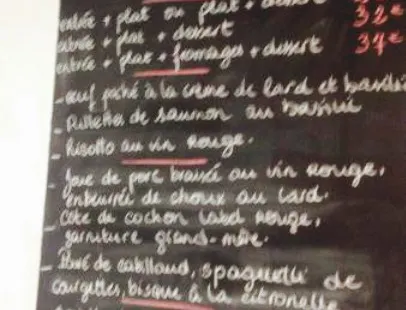 entrée + plat ou plat + dessert
entrée + plat + dessert 32€
entrée + plat + fromages + dessert 37€
- œuf poché à la crème de lard et basilic
- Rillettes de saumon au basilic
- Risotto au vin rouge.
- Joue de porc braisé au vin rouge,
embeurrée de choux au lard.
- Côte de cochon Label Rouge,
garniture grand-mère.
- Pavé de cabillaud, spaguetti de
courgettes, bisque à la citronelle